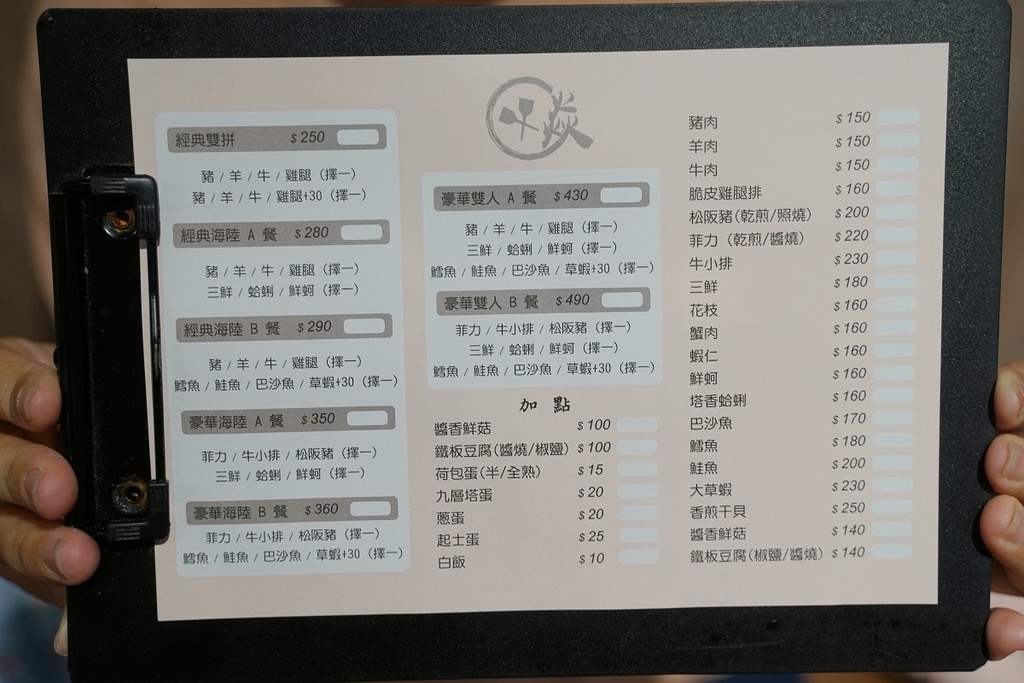 經典雙拼 $250
豬 / 羊 / 牛 / 雞腿（擇一）
豬 / 羊 / 牛 / 雞腿+30（擇一）
經典海陸 A 餐 $280
豬 / 羊 / 牛 / 雞腿（擇一）
三鮮 / 蛤蜊 / 鮮蚵（擇一）
經典海陸 B 餐 $290
豬 / 羊 / 牛 / 雞腿（擇一）
鱈魚 / 鮭魚 / 巴沙魚 / 草蝦+30（擇一）
豪華海陸 A 餐 $350
菲力 / 牛小排 / 松阪豬（擇一）
三鮮 / 蛤蜊 / 鮮蚵（擇一）
豪華海陸 B 餐 $360
菲力 / 牛小排 / 松阪豬（擇一）
鱈魚 / 鮭魚 / 巴沙魚 / 草蝦+30（擇一）
焱
豪華雙人 A 餐 $430
豬 / 羊 / 牛 / 雞腿（擇一）
三鮮 / 蛤蜊 / 鮮蚵（擇一）
鱈魚 / 鮭魚 / 巴沙魚 / 草蝦+30（擇一）
豪華雙人 B 餐 $490
菲力 / 牛小排 / 松阪豬（擇一）
三鮮 / 蛤蜊 / 鮮蚵（擇一）
鱈魚 / 鮭魚 / 巴沙魚 / 草蝦+30（擇一）
加 點
醬香鮮菇 $100
鐵板豆腐(醬燒/椒鹽) $100
荷包蛋(半/全熟) $15
九層塔蛋 $20
蔥蛋 $20
起士蛋 $25
白飯 $10
豬肉 $150
羊肉 $150
牛肉 $150
脆皮雞腿排 $160
松阪豬(乾煎/照燒) $200
菲力（乾煎/醬燒） $220
牛小排 $230
三鮮 $180
花枝 $160
蟹肉 $160
蝦仁 $160
鮮蚵 $160
塔香蛤蜊 $160
巴沙魚 $170
鱈魚 $180
鮭魚 $200
大草蝦 $230
香煎干貝 $250
醬香鮮菇 $140
鐵板豆腐(椒鹽/醬燒) $140